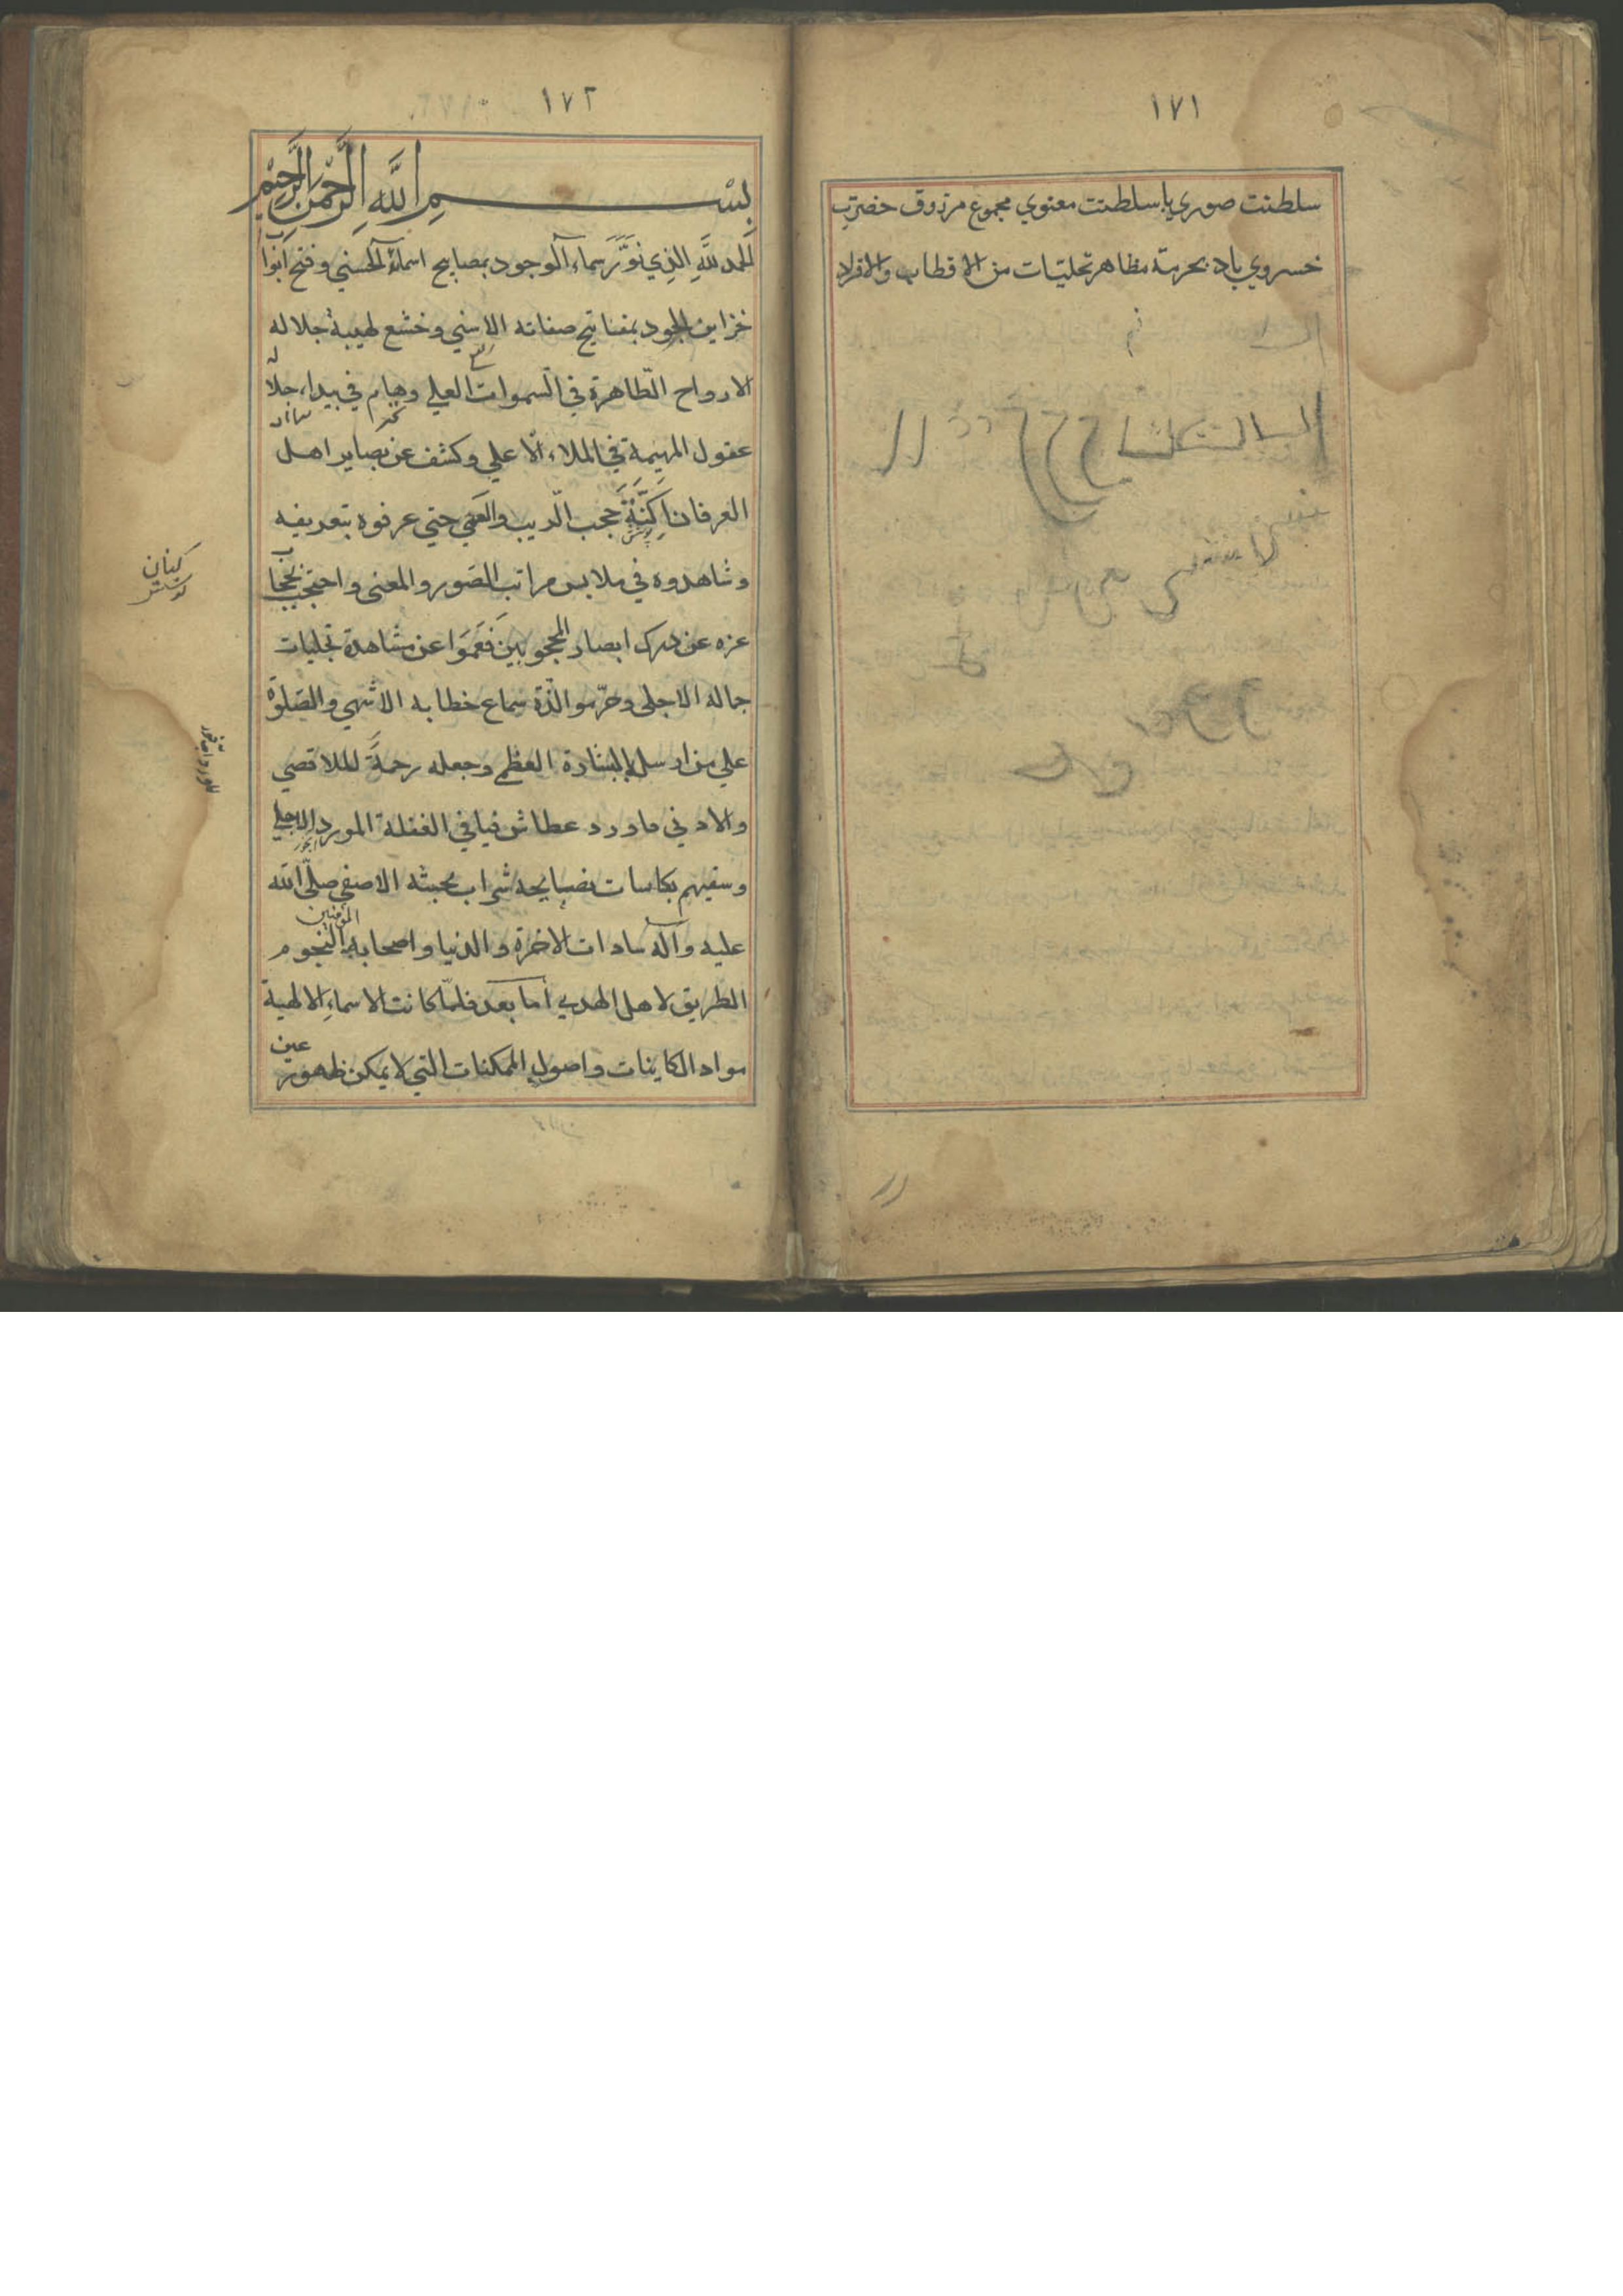 ١٧١
سلطنت صوري با سلطنت معنوي مجموع مرزوق حضرت
خسروي باد بحرمة مظاهر تجليات من الاقطاب والافراد
١٧٢
بسم الله الرحمن الرحيم
الحمد لله الذي نوّر سماء الوجود بمصابيح اسمائه الحسني وفتح ابواب
خزاين الجود بمفاتيح صفاته الاسني وخشع لهيبة جلاله
الارواح الطّاهرة في السموات العلي وهام في بيداء جلاله
عقول المهيمة في الملاء الاعلي وكشف عن بصاير اهل
العرفان اَكِنَّةَ حجب الريب والعمي حتي عرفوه بتعريفه
وشاهدوه في ملابس مراتب الصور والمعنى واحتجب بحجاب
عزه عن درك ابصار المحجوبين فَعَمَوا عن مشاهدة تجليات
جماله الاجلى وحرّموا لذّة سماع خطابه الاشهي والصلوة
علي من ارسل بالبشارة العظمي وجعله رحمةً للملا قصي
والادني ماورد عطاش فيافي الغفلة المورد الاحلي
وسقيهم بكاسات نصايحه شراب محبته الاصفي صلّى الله
عليه وآله سادات الاخرة والدنيا واصحابه النجوم
المؤمنين
الطريق لاهل الهدي اما بعد فلمّا كانت الاسماء الالهية
مواد الكاينات واصول الممكنات التي لا يمكن ظهور عين